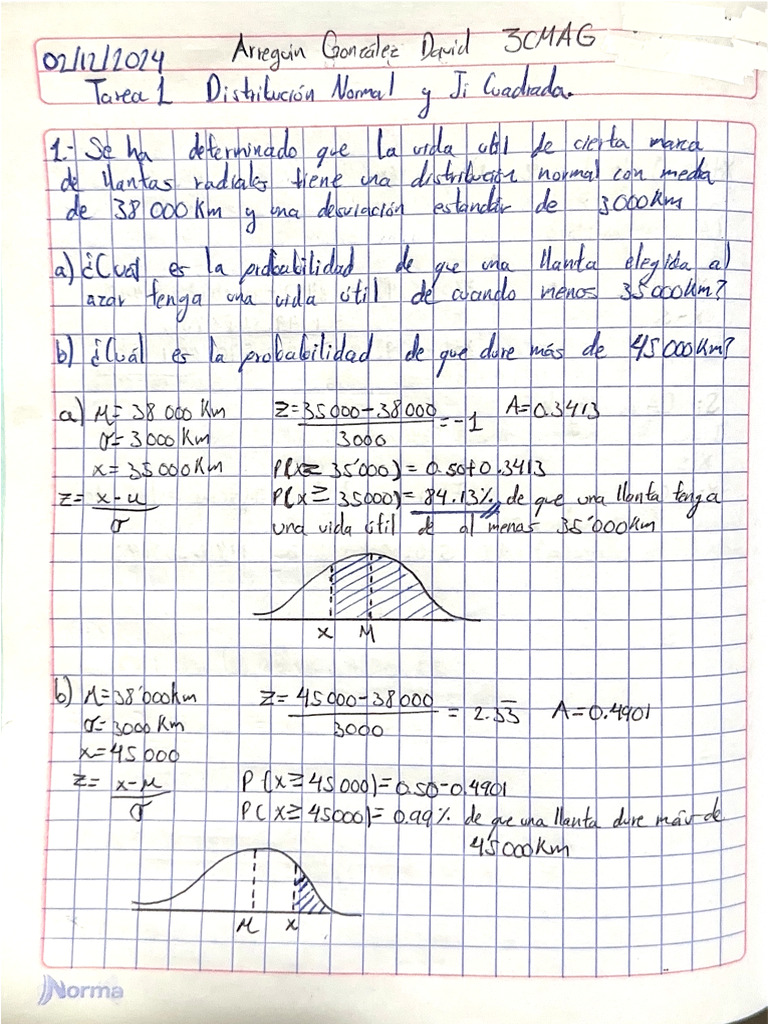 02/12/2024 Arreguin González David 3CMAG
Tarea 1 Distribución Normal y Ji Cuadrada.
1.- Se ha determinado que la vida util de cierta marca
de llantas radiales tiene una distribución normal con media
de 38 000 Km y una desviación estandár de 3000Km
a) ¿Cuál es la probabilidad de que una llanta elegida al
azar tenga una vida útil de cuando menos 35000Km?
b) ¿Cuál es la probabilidad de que dure más de 45000Km?
a) M= 38 000 Km Z= 35000-38000 / 3000 = -1 A=0.3413
σ=3000Km
x= 35000Km P(x≥ 35'000)= 0.50+0.3413
z= x-u / σ P(x≥ 35000)= 84.13% de que una llanta tenga
una vida útil de al menos 35'000Km
x M
b) M=38'000Km Z= 45000-38000 / 3000 = 2.33̅ A=0.4901
σ=3000Km
x=45000
z= x-u / σ P(x≥45000)=0.50-0.4901
P(x≥45000)= 0.99% de que una llanta dure más de
45000Km
M x
Norma